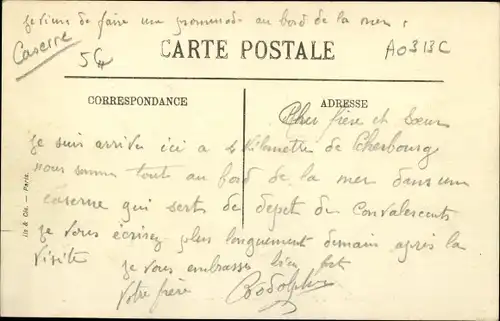 Je viens de faire une promenade au bord de la mer
Caserne
5f
A0313C
CARTE POSTALE
CORRESPONDANCE
ADRESSE
Cher frère et Sœur
Je suis arriver ici a 4 Kilomettre de Cherbourg
nous somme tout au bord de la mer dans une
caserne qui sert de depot de Convalescents
Je vous écrirez plus longuement demain après la
visite
Je vous embrasse bien fort
Votre frère
Rodolphe
& Cie. — Paris.